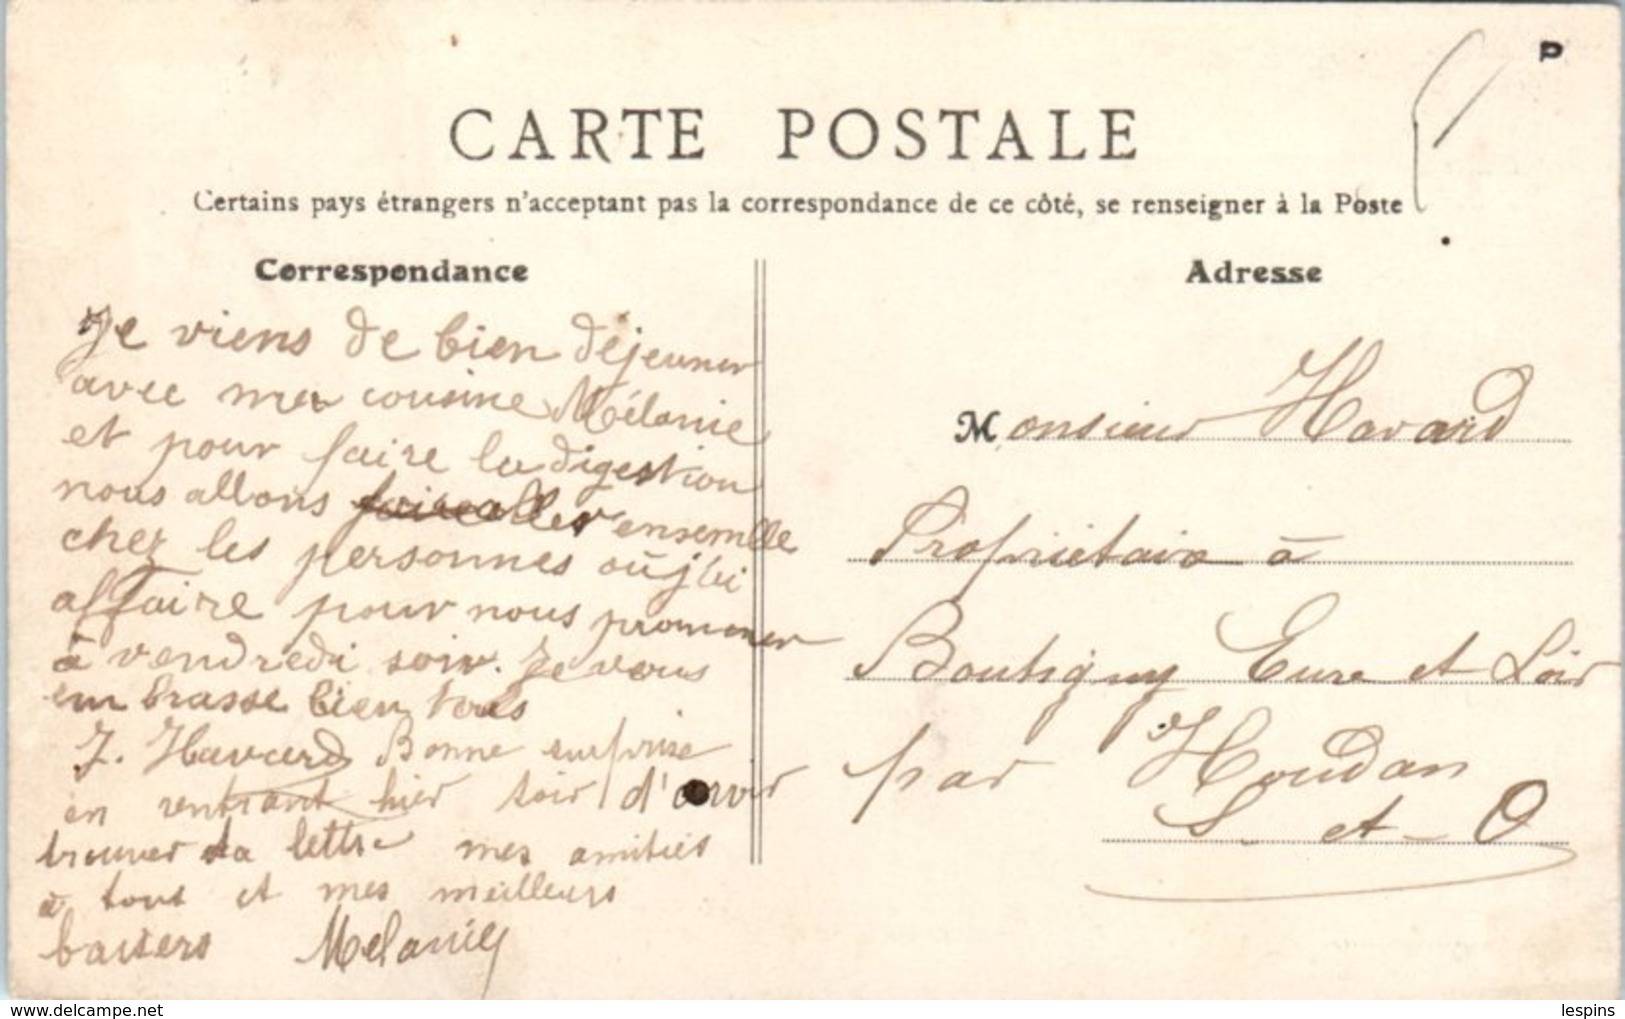 P
CARTE POSTALE
Certains pays étrangers n'acceptant pas la correspondance de ce côté, se renseigner à la Poste
Correspondance
Je viens de bien déjeuner
avec ma cousine Mélanie
et pour faire la digestion
nous allons faire aller ensemble
chez les personnes où j'ai
affaire pour nous promener
à vendredi soir. Je vous
embrasse bien tous
J. Havard Bonne surprise
en rentrant hier soir d'avoir
trouver ta lettre mes amitiés
à tous et mes meilleurs
baisers Mélanie
Adresse
Monsieur Havard
Propriétaire à
Boutigny Eure et Loir
par Houdan
S-et-O
delcampe.net
lespins